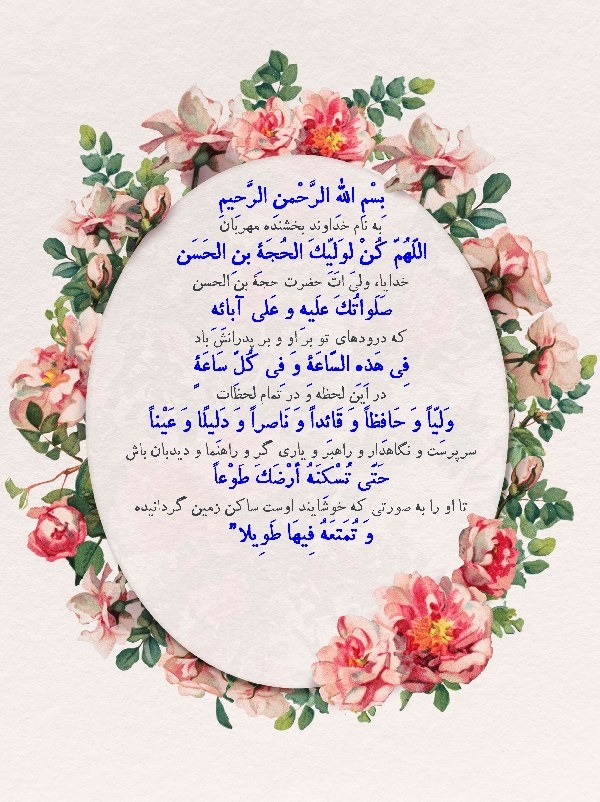 بِسْمِ اللهِ الرَّحْمنِ الرَّحِيمِ
به نام خداوند بخشنده مهربان
اللّهُمّ كُنْ لِوَلِيّكَ الحُجَةِ بنِ الحَسَن
خدایا، ولیّ اتَ حضرت حجهَ بن الحسن
صَلَواتُكَ عَلَيهِ و عَلى آبائِه
که درودهای تو بر او و بر پدرانش باد
فِى هَذِه السَّاعَةِ وَ فى كُلّ سَاعَةٍ
در این لحظه و در تمام لحظات
وَلِيّاً وَ حَافظاً وَ قَائداً وَ نَاصراً وَ دَليلًا وَ عَيْناً
سرپرست و نگاهدار و راهبر و یاری گر و راهنما و دیدبان باش
حَتّى تُسْكنَهُ أرْضَكَ طَوْعاً
تا او را به صورتی که خوشایند اوست ساکن زمین گردانیده
وَ تُمَتعَهُ فِيهَا طَوِيلا”